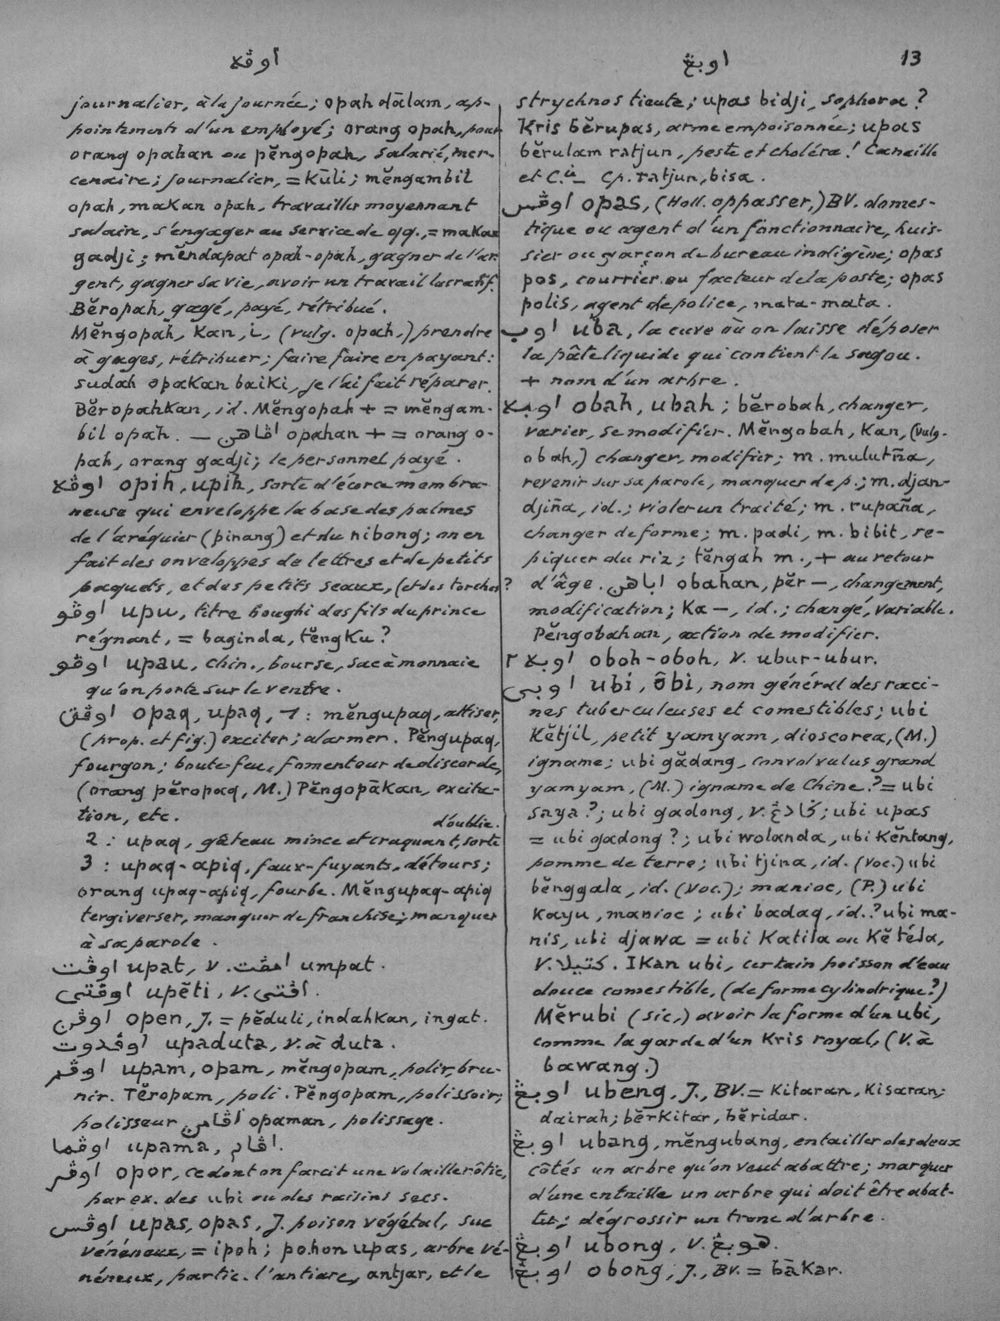 اوڤه
اوبڠ 13
journalier, à la journée; opah dālam, ap-
pointements d'un employé; orang opah, pour
orang opahan ou pĕngopah, salarié, mer-
cenaire; journalier, = Kūli; mĕngambil
opah, makan opah, travailler moyennant
salaire, s'engager au service de qq., = makan
gadji; mĕndapat opah-opah, gagner de l'ar
gent, gagner sa vie, avoir un travail lucratif.
Bĕropah, gagé, payé, rétribué.
Mĕngopah, Kan, i, (vulg. opah,) prendre
à gages, rétribuer; faire faire en payant:
sudah opakan baiki, je l'ai fait réparer.
Bĕropahkan, id. Mĕngopah + = mĕngam-
bil opah. — اڤاهن opahan + = orang o-
pah, orang gadji; le personnel payé.
اوڤه opih, upih, sorte d'écorce membra-
neuse qui enveloppe la base des palmes
de l'aréquier (pinang) et du nibong; on en
fait des enveloppes de lettres et de petits
paquets, et des petits seaux, (et des torches?
اوڤو upu, titre boughi des fils du prince
régnant, = baginda, tĕngku?
اوڤو upau, chin., bourse, sac à monnaie
qu'on porte sur le ventre.
اوڤق opaq, upaq, 1: mĕngupaq, attiser,
(prop. et fig.) exciter; alarmer. Pĕngupaq,
fourgon; boute feu, fomenteur de discorde,
(orang pĕropaq, M.) Pĕngopākan, excita-
tion, etc.
d'oublie.
2: upaq, gâteau mince et craquant, sorte
3: upaq-apiq, faux-fuyants, détours;
orang upaq-apiq, fourbe. Mĕngupaq-apiq
tergiverser, manquer de franchise; manquer
à sa parole.
اوڤت upat, v. امڤت umpat.
اوڤتي upĕti, v. اڤتي.
اوڤن open, J. = pĕduli, indahkan, ingat.
اوڤدوت upaduta, v. à duta.
اوڤم upam, opam, mĕngopam, polir, bru-
nir. Tĕropam, poli. Pĕngopam, polissoir;
polisseur اڤامن opaman, polissage.
اوڤما upama, اڤام.
اوڤر opor, ce dont on farcit une volaille rôtie,
par ex. des ubi ou des raisins secs.
اوڤس upas, opas, J. poison végétal, suc
vénéneux, = ipoh; pohon upas, arbre vé-
néneux, partic. l'antiare, antjar, et le
strychnos tieute; upas bidji, sophora?
Kris bĕrupas, arme empoisonnée; upas
bĕrulam ratjun, peste et choléra! Canaille
et C.ie Cp. ratjun, bisa.
اوڤس opas, (Holl. oppasser,) BV. domes-
tique ou agent d'un fonctionnaire, huis-
sier ou garçon de bureau indigène; opas
pos, courrier ou facteur de la poste; opas
polis, agent de police, mata-mata.
اوب uba, la cuve où on laisse déposer
la pâte liquide qui contient le sagou.
+ nom d'un arbre.
اوبه obah, ubah; bĕrobah, changer,
varier, se modifier. Mĕngobah, Kan, (vulg.
obah,) changer, modifier; m. mulutña,
revenir sur sa parole, manquer de p.; m. djan-
djiña, id.; violer un traité; m. rupaña,
changer de forme; m. padi, m. bibit, re-
piquer du riz; tĕngah m., + au retour
d'âge. اباهن obahan, pĕr —, changement,
modification; Ka —, id.; changé, variable.
Pĕngobahan, action de modifier.
اوبه ٢ oboh-oboh, v. ubur-ubur.
اوبي ubi, ôbi, nom général des raci-
nes tuberculeuses et comestibles; ubi
Kĕtjil, petit yamyam, dioscorea, (M.)
igname; ubi gădang, convolvulus grand
yamyam, (M.) igname de Chine? = ubi
saya?; ubi gadong, v. ݢادڠ; ubi upas
= ubi gadong?; ubi wolanda, ubi Kĕntang,
pomme de terre; ubi tjina, id. (Voc.) ubi
bĕnggala, id. (Voc.); manioc, (P.) ubi
Kayu, manioc; ubi badaq, id.? ubi ma-
nis, ubi djawa = ubi Katila ou Kĕtéla,
v. كتيلا. Ikan ubi, certain poisson d'eau
douce comestible, (de forme cylindrique?)
Mĕrubi (sic,) avoir la forme d'un ubi,
comme la garde d'un Kris royal, (v. à
bawang.)
اوبڠ ubeng, J., BV. = Kitaran, Kisaran;
dairah; bĕrkitar, bĕridar.
اوبڠ ubang, mĕngubang, entailler des deux
côtés un arbre qu'on veut abattre; marquer
d'une entaille un arbre qui doit être abat-
tu; dégrossir un tronc d'arbre.
اوبڠ ubong, v. هوبڠ.
اوبڠ obong, J., BV. = bākar.